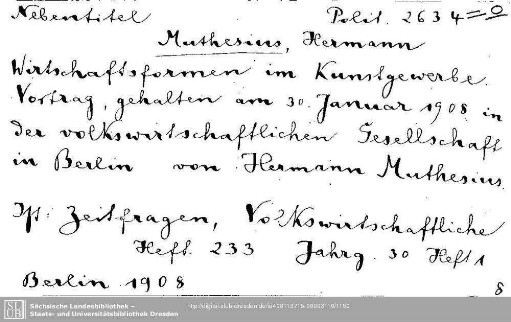 Nebentitel Polit. 2634 = 0
Muthesius, Hermann
Wirtschaftsformen im Kunstgewerbe.
Vortrag, gehalten am 30. Januar 1908 in
der volkswirtschaftlichen Gesellschaft
in Berlin von Hermann Muthesius.
Ist: Zeitfragen, Volkswirtschaftliche
Heft. 233 Jahrg. 30 Heft 1
Berlin 1908
8
Sächsische Landesbibliothek –
Staats- und Universitätsbibliothek Dresden